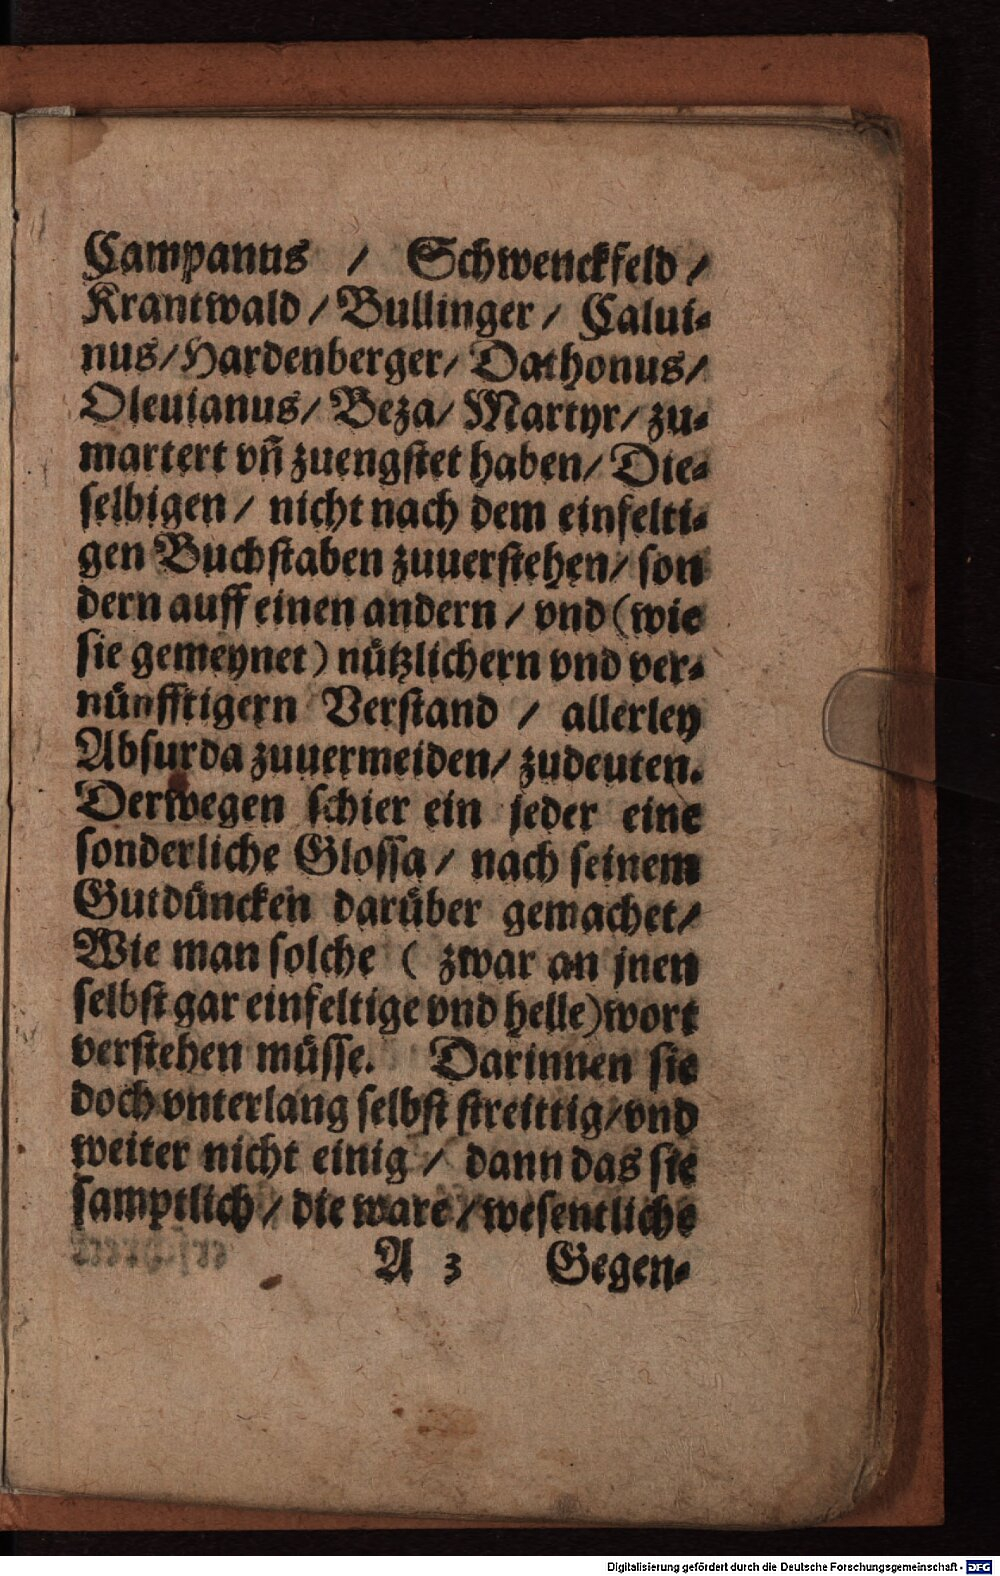 Campanus / Schwenckfeld /
Krantwald / Bullinger / Calui-
nus / Hardenberger / Dathonus /
Oleuianus / Beza / Martyr / zu-
martert vñ zuengstet haben / Die-
selbigen / nicht nach dem einfelti-
gen Buchstaben zuuerstehen / son
dern auff einen andern / vnd (wie
sie gemeynet) nützlichern vnd ver-
nünfftigern Verstand / allerley
Absurda zuuermeiden / zudeuten.
Derwegen schier ein jeder eine
sonderliche Glossa / nach seinem
Gutdüncken darüber gemachet /
Wie man solche ( zwar an jnen
selbst gar einfeltige vnd helle) wort
verstehen müsse. Darinnen sie
doch vnterlang selbst streittig / vnd
weiter nicht einig / dann das sie
samptlich / die ware / wesentliche
A 3 Gegen-
Digitalisierung gefördert durch die Deutsche Forschungsgemeinschaft - DFG